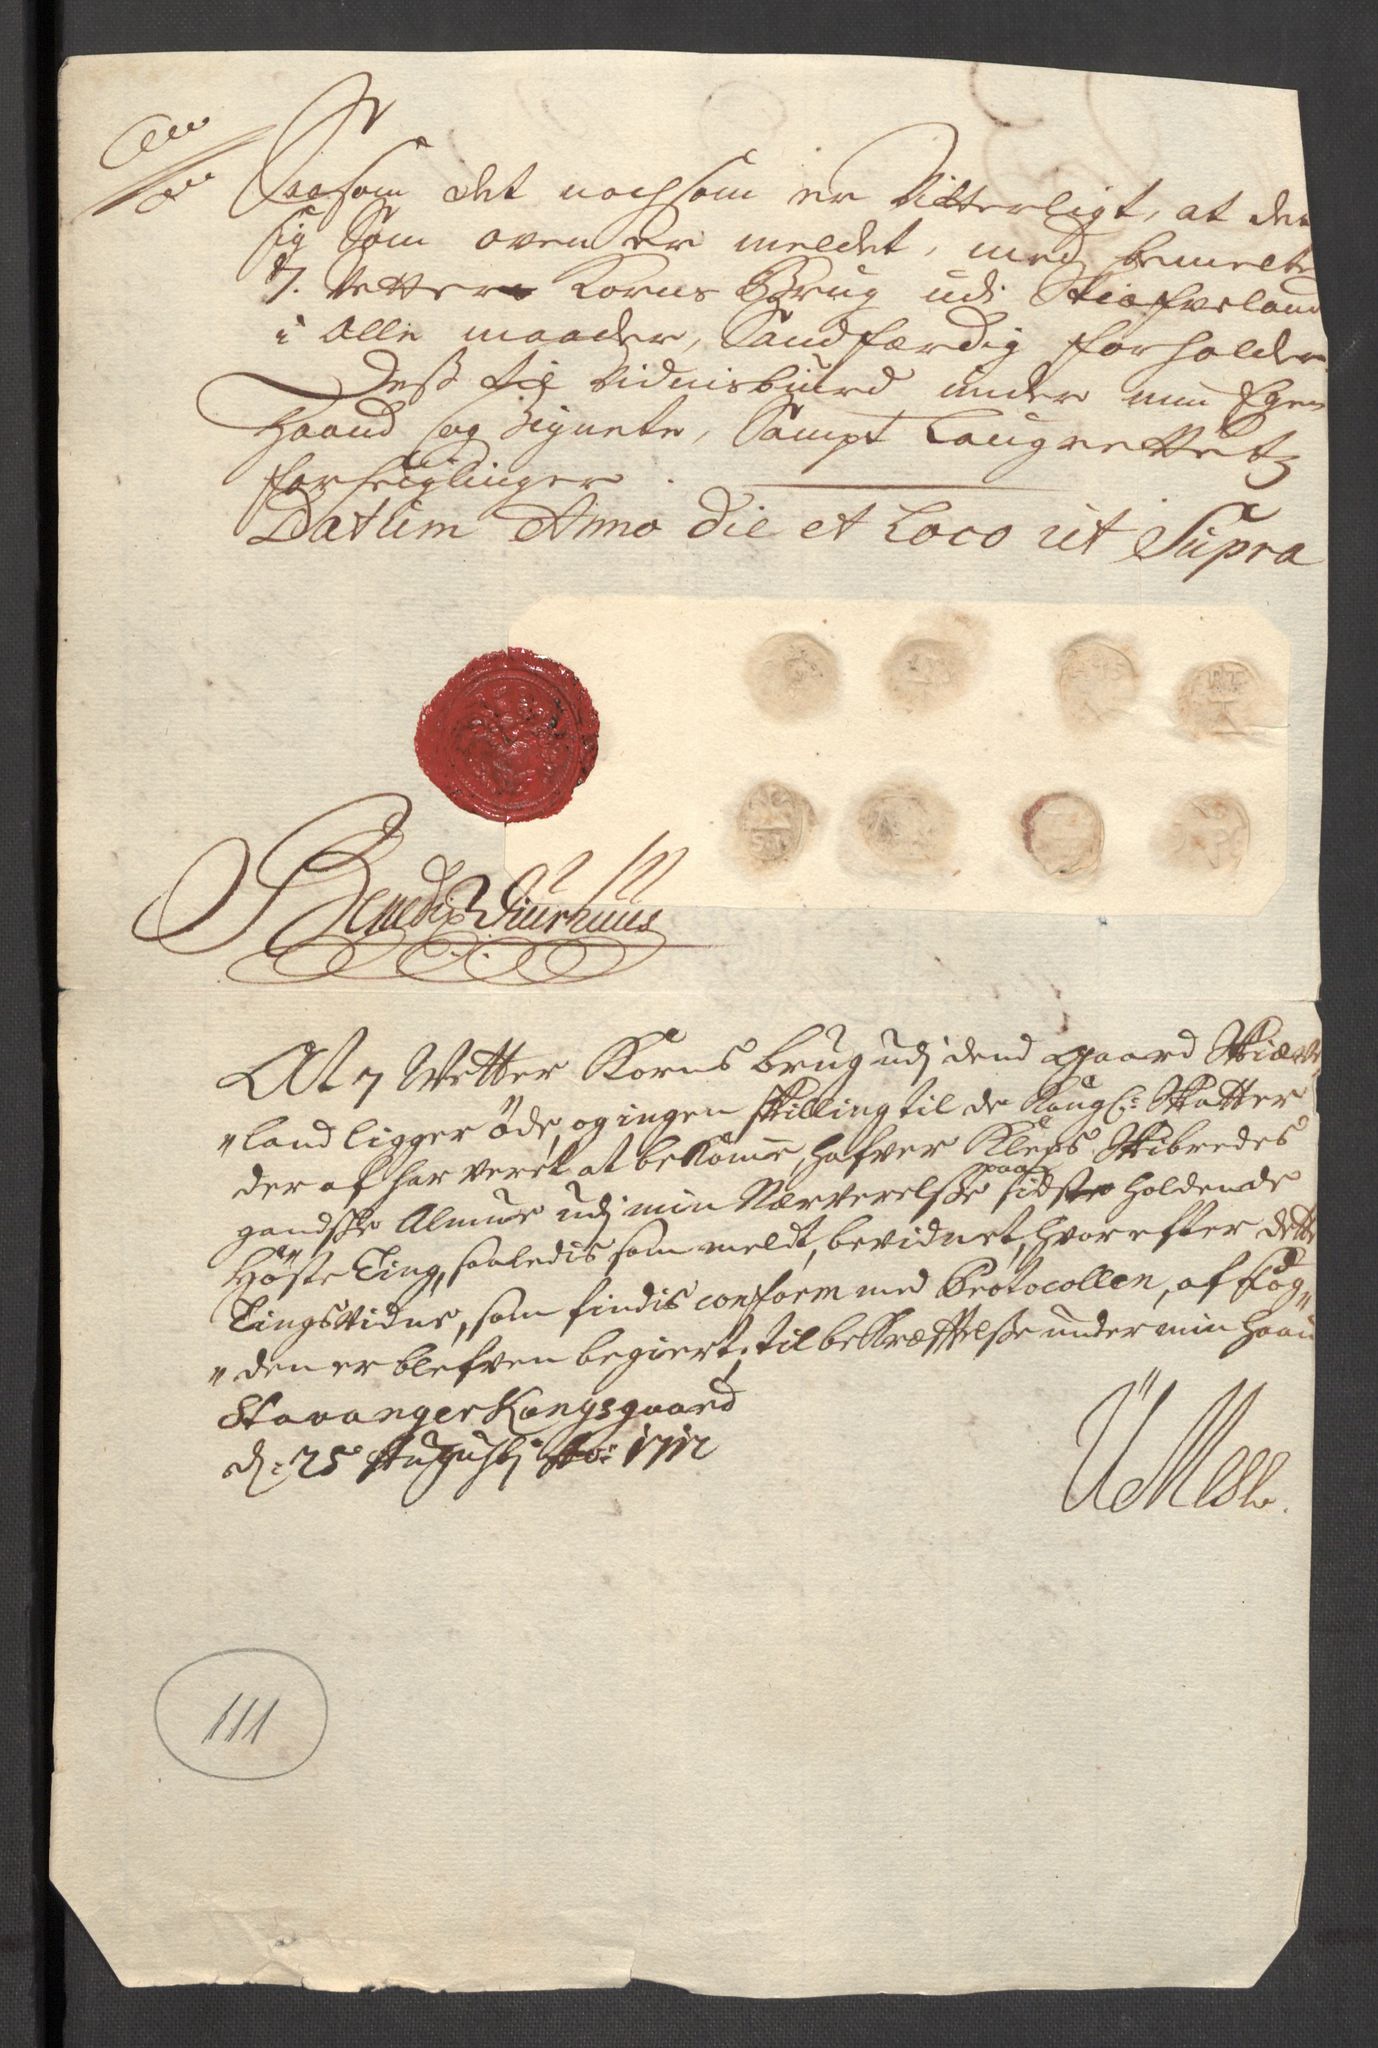 Saasom det nochsom er Vitterligt, at det
sig Som oven er meldet, med bemelte
7. Vetter Korns Brug udi Skiefveland
i Alle maader, Sandfærdig forholder
Dess til Vidnisbiurd under min Egen
Haand og Signete, Sampt Laugrettetz
forseiglinger.
Datum Anno Die et Loco ut Supra
Benedix Diurhuus
At 7 Vetter Korns brug udj dend gaard Skiæve
"land ligger øde, og ingen skilling til de Kongl: Skatter
der af har veret at bekomme, hafver Kleps Skibredes
gandske Almue udj min Nærverelsse paa sidste holdende
Høste Ting, saaledis som meldt, bevidnet, hvorefter dette
Tingsvidne, som findis conform med Protocollen, af Fog"
"den er blefven begiert, til bekræfftelsse under min Haand
Stavanger Kongsgaard
d: 25 Augustj Ao: 1712
111